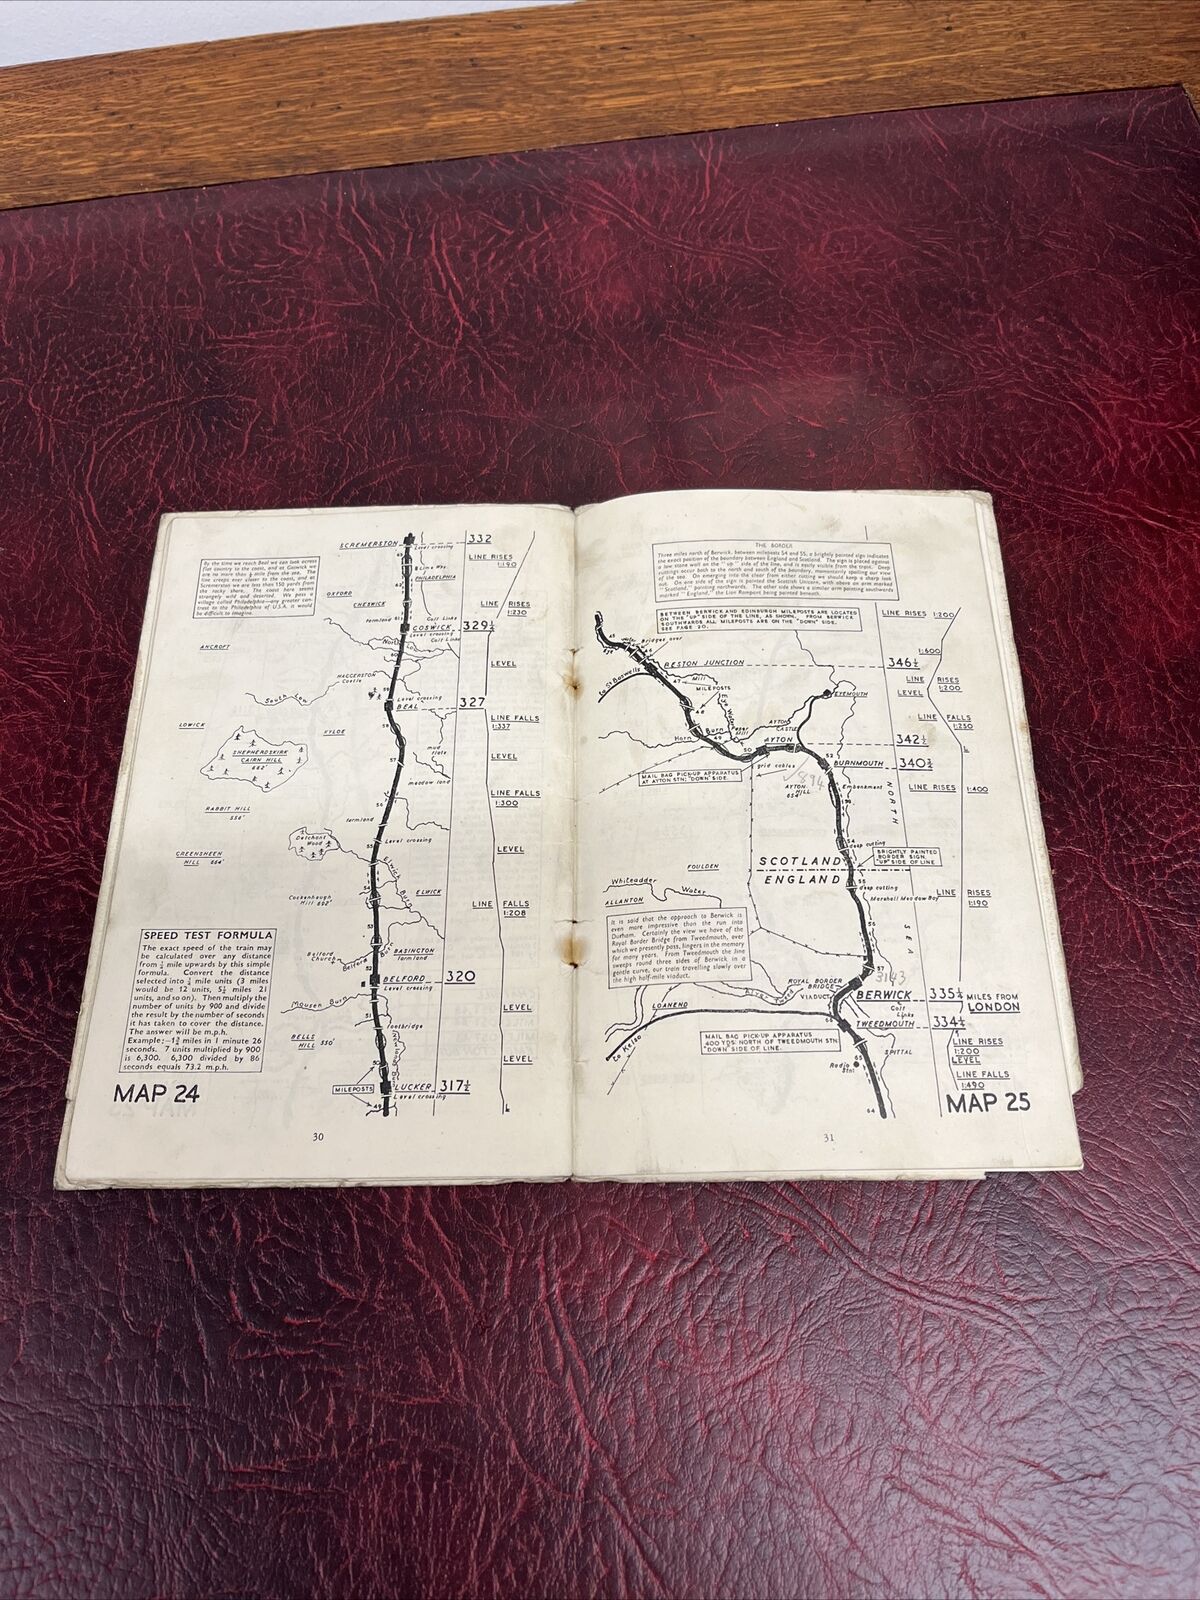 SCREMERSTON
332
Level crossing
By the time we reach Beal we can look across
flat country to the coast, and at Goswick we
are no more than ½ mile from the sea. The
line creeps ever closer to the coast, and at
Scremerston we are less than 150 yards from
the rocky shore. The coast here seems
strangely wild and deserted. We pass a
village called Philadelphia—any greater con-
trast to the Philadelphia of U.S.A. it would
be difficult to imagine.
LINE RISES
1:190
Lime Wks.
PHILADELPHIA
OXFORD
CHESWICK
LINE RISES
1:230
farmland
Golf Links
GOSWICK
329½
Level crossing
Golf Links
ANCROFT
North Low
LEVEL
HAGGERSTON
Castle
South Low
Level crossing
BEAL
327
LOWICK
KYLOE
LINE FALLS
1:337
SHEPHERDSKIRK
CAIRN HILL
682'
mud
flats
LEVEL
meadow land
RABBIT HILL
556'
LINE FALLS
1:300
farmland
Detchant
Wood
Level crossing
GREENSHEEN
HILL 664'
LEVEL
Elwick Burn
Cockenheugh
Hill 692'
ELWICK
LINE FALLS
1:208
SPEED TEST FORMULA
The exact speed of the train may
be calculated over any distance
from ¼ mile upwards by this simple
formula. Convert the distance
selected into ¼ mile units (3 miles
would be 12 units, 5¼ miles 21
units, and so on). Then multiply the
number of units by 900 and divide
the result by the number of seconds
it has taken to cover the distance.
The answer will be m.p.h.
Example:—1¾ miles in 1 minute 26
seconds. 7 units multiplied by 900
is 6,300. 6,300 divided by 86
seconds equals 73.2 m.p.h.
Belford
Church
Belford Burn
EASINGTON
farmland
BELFORD
320
Level crossing
Mousen Burn
LEVEL
footbridge
BELLS
HILL 550'
LEVEL
MILEPOSTS
LUCKER
317½
Level crossing
MAP 24
30
THE BORDER
Three miles north of Berwick, between mileposts 54 and 55, a brightly painted sign indicates
the exact position of the boundary between England and Scotland. The sign is placed against
a low stone wall on the "up" side of the line, and is easily visible from the train. Deep
cuttings occur both to the north and south of the boundary, momentarily spoiling our view
of the sea. On emerging into the clear from either cutting we should keep a sharp look
out. On one side of the sign is painted the Scottish Unicorn, with above an arm marked
"Scotland," pointing northwards. The other side shows a similar arm pointing southwards
marked "England," the Lion Rampant being painted beneath.
BETWEEN BERWICK AND EDINBURGH MILEPOSTS ARE LOCATED
ON THE "UP" SIDE OF THE LINE, AS SHOWN. FROM BERWICK
SOUTHWARDS ALL MILEPOSTS ARE ON THE "DOWN" SIDE.
SEE PAGE 20.
LINE RISES 1:200
Bridges over
Eye
1:600
RESTON JUNCTION
346¼
to St Boswells
47
Mill
LINE RISES
LEVEL 1:200
MILEPOSTS
48
Eye Water
EYEMOUTH
AYTON
CASTLE
LINE FALLS
1:250
Horn Burn
49
AYTON
342¼
50
BURNMOUTH
340¾
MAIL BAG PICK-UP APPARATUS
AT AYTON STN; "DOWN" SIDE.
grid cables
894
AYTON
HILL
654'
Embankment
LINE RISES 1:400
NORTH
deep cutting
BRIGHTLY PAINTED
BORDER SIGN.
"UP" SIDE OF LINE
SCOTLAND
ENGLAND
FOULDEN
deep cutting
Whiteadder Water
ALLANTON
Marshall Meadow Bay
LINE RISES
1:190
It is said that the approach to Berwick is
even more impressive than the run into
Durham. Certainly the view we have of the
Royal Border Bridge from Tweedmouth, over
which we presently pass, lingers in the memory
for many years. From Tweedmouth the line
sweeps round three sides of Berwick in a
gentle curve, our train travelling slowly over
the high half-mile viaduct.
SEA
57
3143
ROYAL BORDER
BRIDGE
VIADUCT
River Tweed
BERWICK
335¼ MILES FROM
LONDON
LOANEND
Golf
Links
TWEEDMOUTH
334¼
to Kelso
66
MAIL BAG PICK-UP APPARATUS
400 YDS: NORTH OF TWEEDMOUTH STN.
"DOWN" SIDE OF LINE.
LINE RISES
1:200
LEVEL
SPITTAL
65
Radio
Stn.
LINE FALLS
1:490
64
MAP 25
31